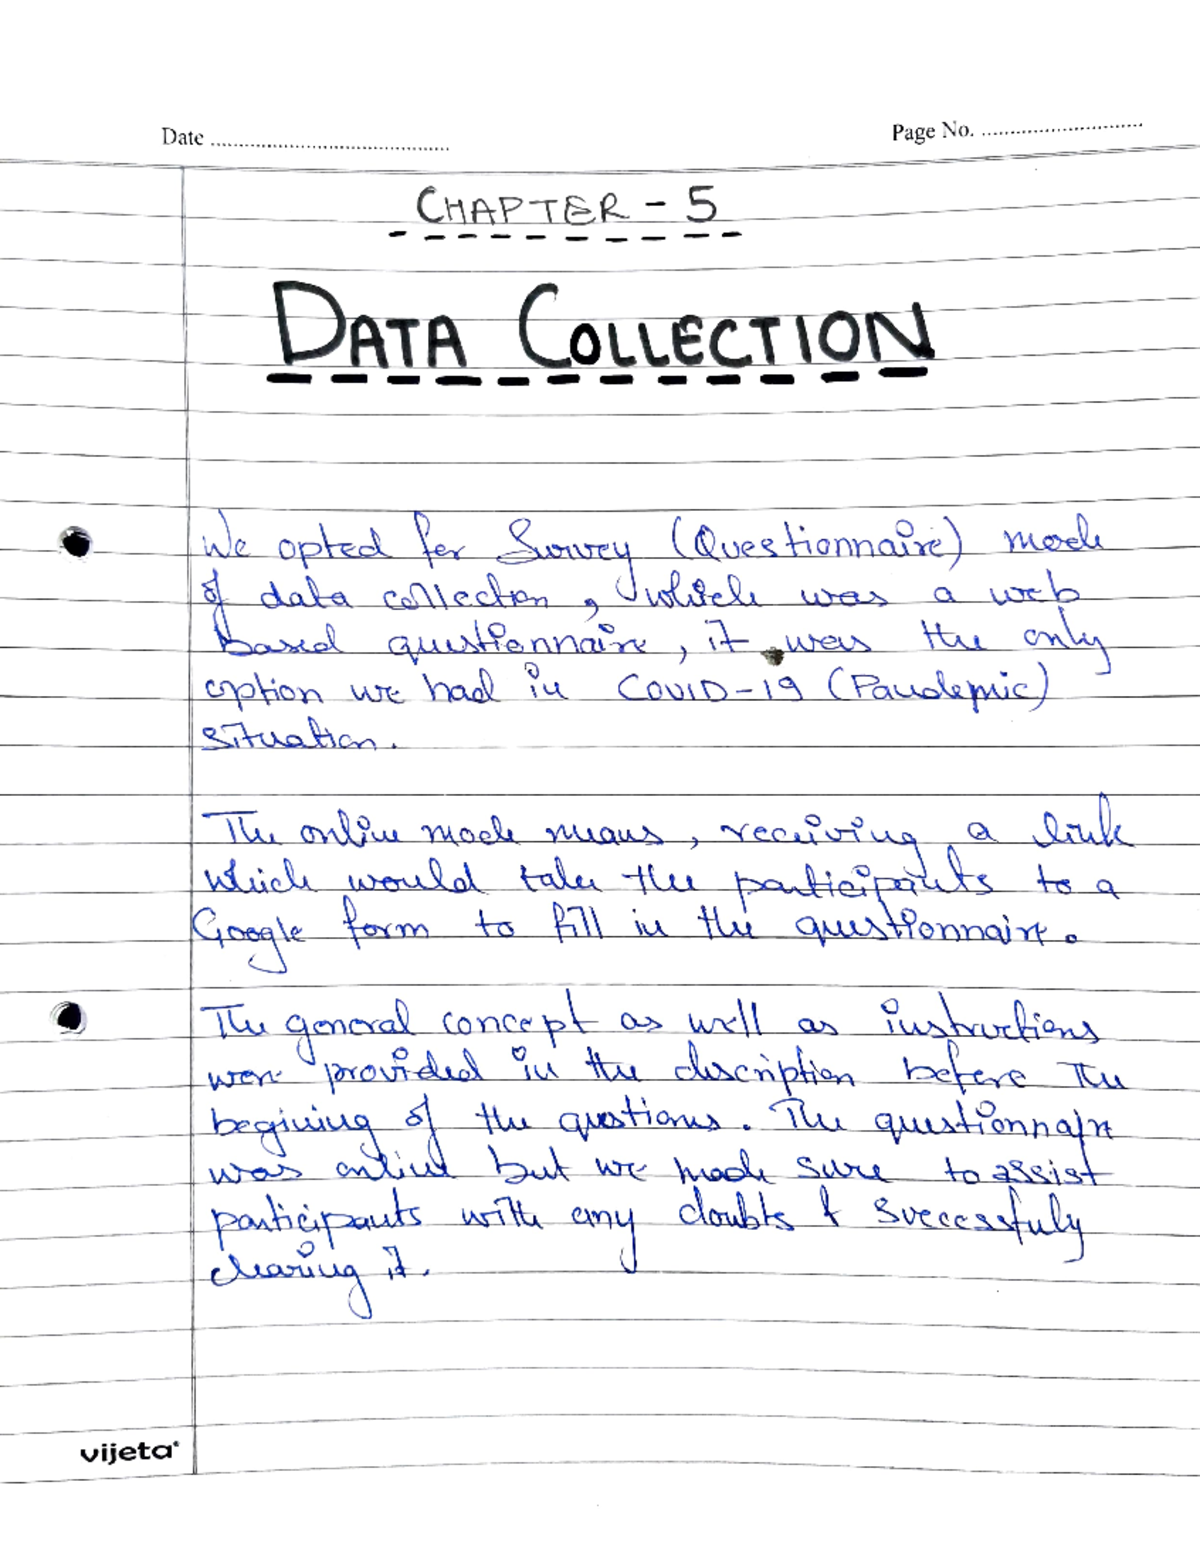 Date ........................................ Page No. ............................
CHAPTER - 5
DATA COLLECTION
We opted for Survey (Questionnaire) mode
of data collection, which was a web
based questionnaire, it was the only
option we had in COVID-19 (Pandemic)
situation.
The online mode means, receiving a link
which would take the participants to a
Google form to fill in the questionnaire.
The general concept as well as instructions
were provided in the description before the
begining of the questions. The questionnaire
was online but we made sure to assist
participants with any doubts & successfuly
clearing it.
vijeta